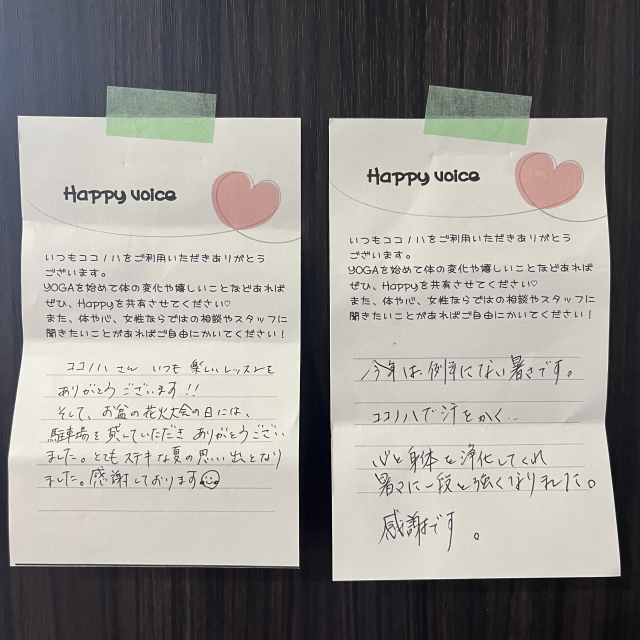 Happy voice
いつもココノハをご利用いただきありがとう
ございます。
YOGAを始めて体の変化や嬉しいことなどあれば
ぜひ、Happyを共有させてください♡
また、体や心、女性ならではの相談やスタッフに
聞きたいことがあればご自由にかいてください！
ココノハさん いつも楽しいレッスンを
ありがとうございます!!
そして、お盆の花火大会の日には、
駐車場を貸していただき ありがとうござい
ました。とてもステキな夏の思い出となり
ました。感謝しております
Happy voice
いつもココノハをご利用いただきありがとう
ございます。
YOGAを始めて体の変化や嬉しいことなどあれば
ぜひ、Happyを共有させてください♡
また、体や心、女性ならではの相談やスタッフに
聞きたいことがあればご自由にかいてください！
今年は、例年にない暑さです。
ココノハで汗をかく…
心と身体を浄化してくれ
暑さに一段と強くなりました。
感謝です。